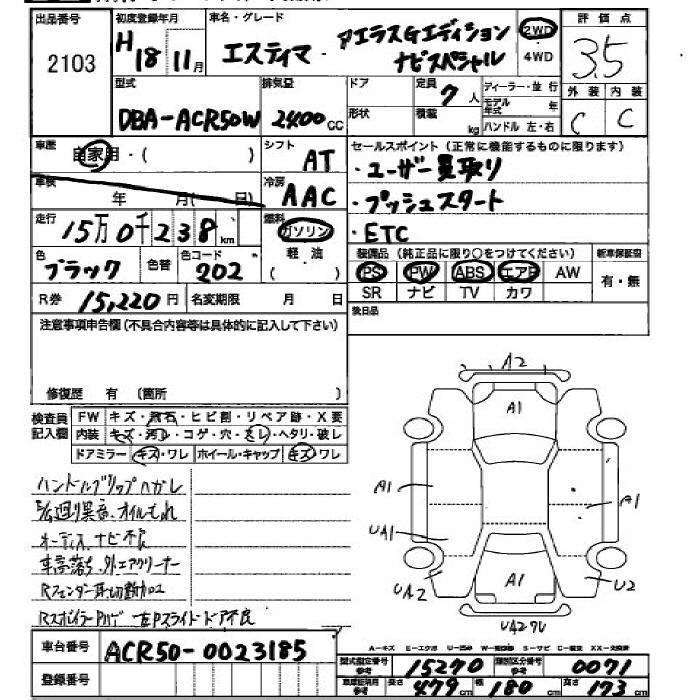 出品番号 初度登録年月 車名・グレード 評価点
2103 H18 11月 エスティマ アエラスGエディション 2WD 3.5
ナビスペシャル 4WD
型式 排気量 ドア 定員 ディーラー・並行 外装 内装
DBA-ACR50W 2400cc 7人 モデル年式 年 C C
形状 積載 kg ハンドル 左・右
車歴 自家用・( ) シフト AT セールスポイント(正常に機能するものに限ります)
・ユーザー買取り
車検 年 月( 日) 冷房 AAC ・プッシュスタート
走行 15万0千238km 燃料 ガソリン ・ETC
軽油
( )
色 ブラック 色替 色コード 202
装備品(純正品に限り○をつけてください) 新車保証書
PS PW ABS エアB AW 有・無
SR ナビ TV カワ
R券 15,220円 名変期限 月 日 後日品
注意事項申告欄(不具合内容等は具体的に記入して下さい)
修復歴 有 〔箇所 〕
検査員記入欄 FW キズ・飛石・ヒビ割・リペア跡・X要
内装 キズ・汚れ・コゲ・穴・スレ・ヘタリ・破レ
ドアミラー キズ・ワレ ホイール・キャップ キズ・ワレ
ハンドルグリップハガレ
廻り異音、オイルもれ
オーディオ、ナビ不良
車高落ち、外エアクリーナー
Rフェンダー耳切断加工
RスポイラーPハゲ 左Pスライドドア不良
A2
A1
A1
A1
UA1
UA2
A1
U2
UA2
A-キズ E-エクボ U-凹み W-補修跡 S-サビ C-腐食 XX-交換済
車台番号 ACR50-0023185
登録番号
型式指定番号参考 15270 類別区分番号参考 0071
車庫証明用参考 長さ 479cm 幅 180cm 高さ 173cm